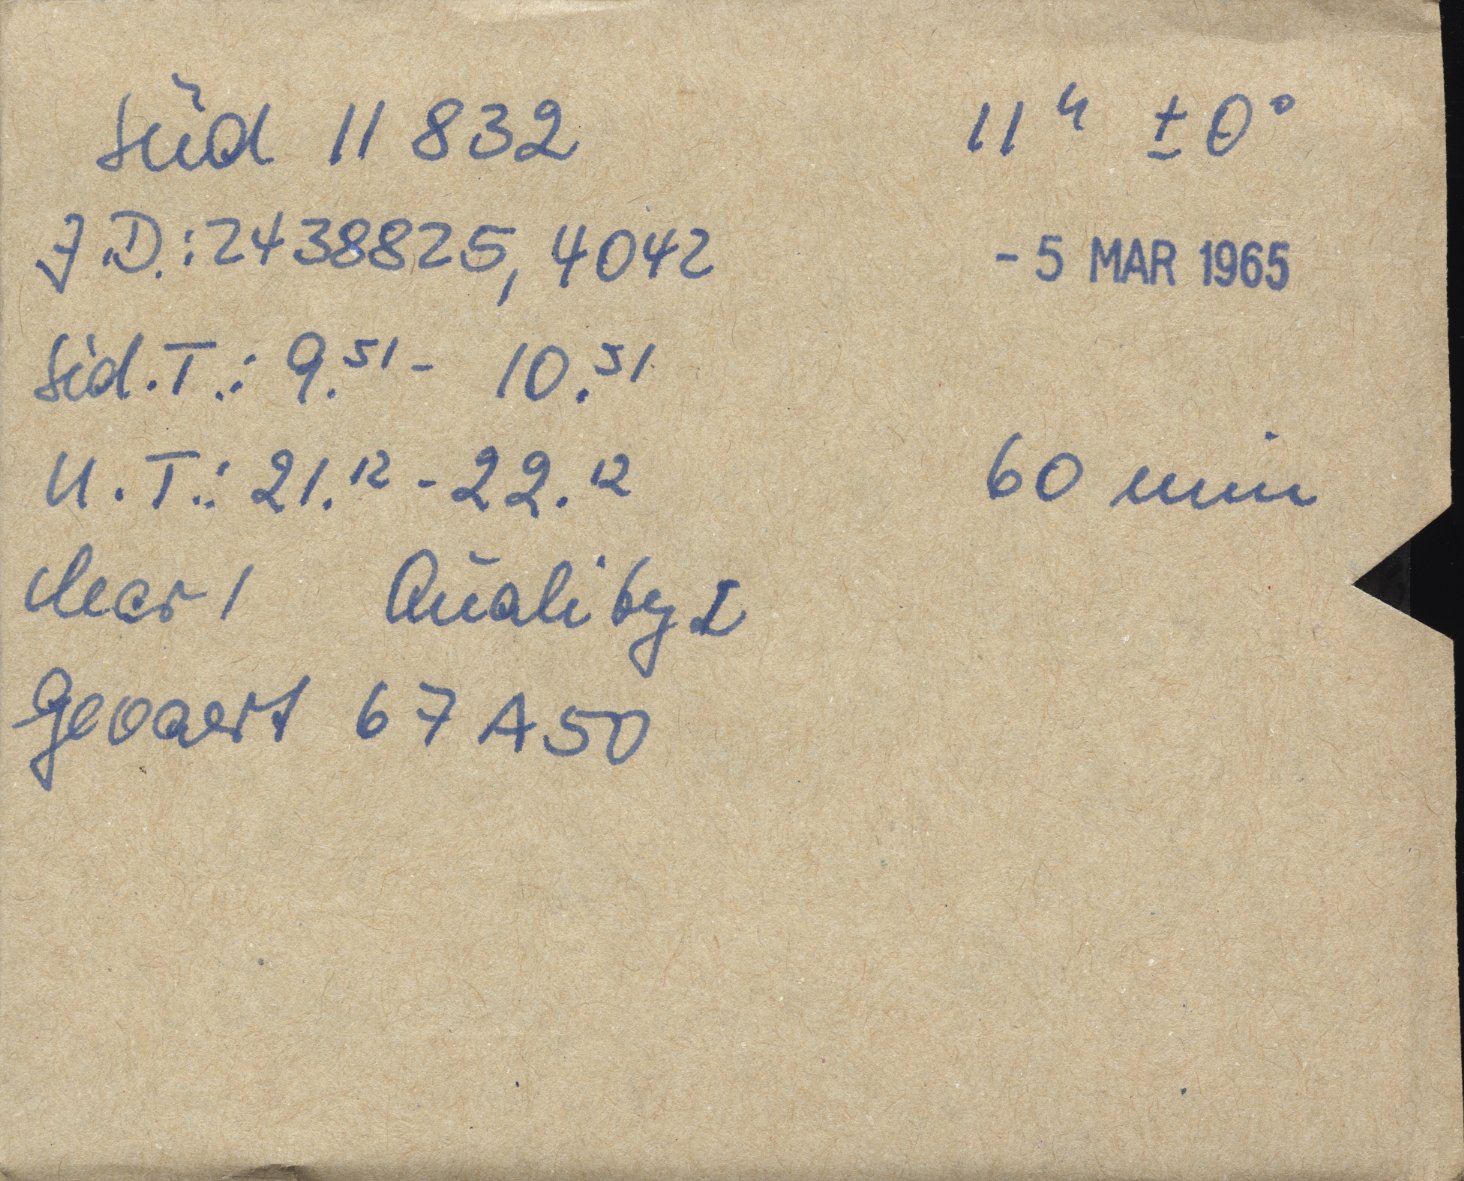 Süd 11 832 11ʰ ±0°
J.D.: 2438825,4042 -5 MAR 1965
Sid.T.: 9.⁵¹ - 10.⁵¹
U.T.: 21.¹² - 22.¹² 60 min
clear 1 Quality I
Gevaert 67 A 50